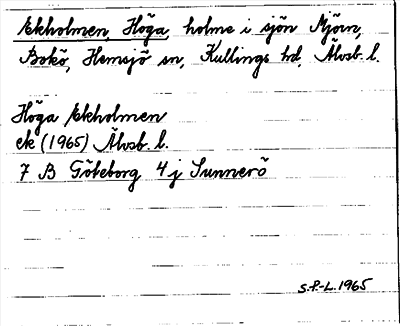 Ekholmen, Höga, holme i sjön Mjörn,
Bokö, Hemsjö sn, Kullings hd, Älvsb. l.
Höga Ekholmen
ek (1965) Älvsb. l.
7 B Göteborg 4 j Sunnerö
S.P-L. 1965